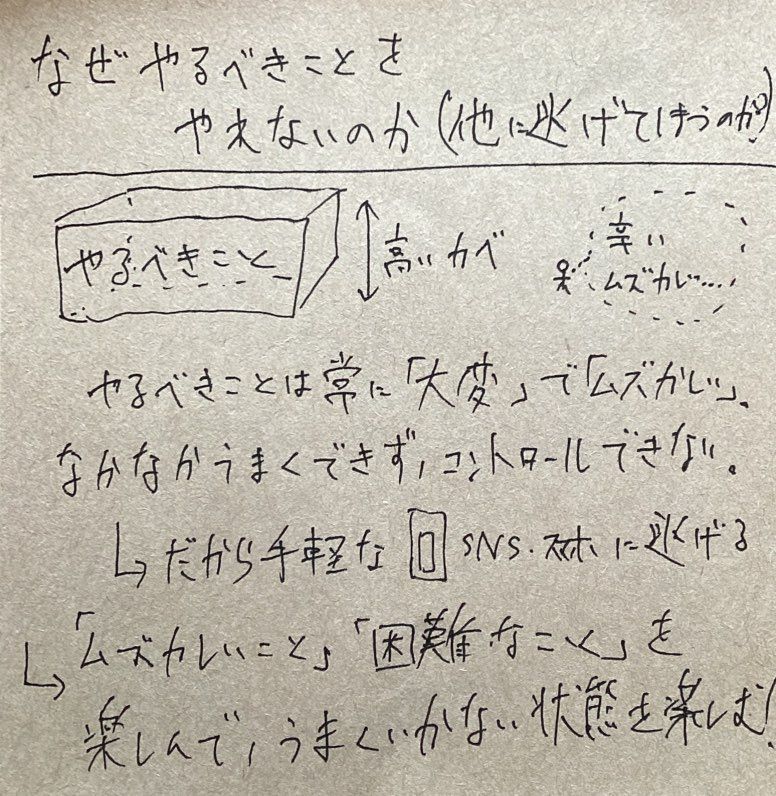 なぜやるべきことを
やれないのか(他に逃げてしまうのか?)
やるべきこと
高いカベ
辛い
ムズカしい...
やるべきことは常に「大変」で「ムズかしい」。
なかなかうまくできず,コントロールできない。
だから手軽な SNS・スマホに逃げる
「ムズカしいこと」「困難なこと」を
楽しんで,うまくいかない状態を楽しむ!